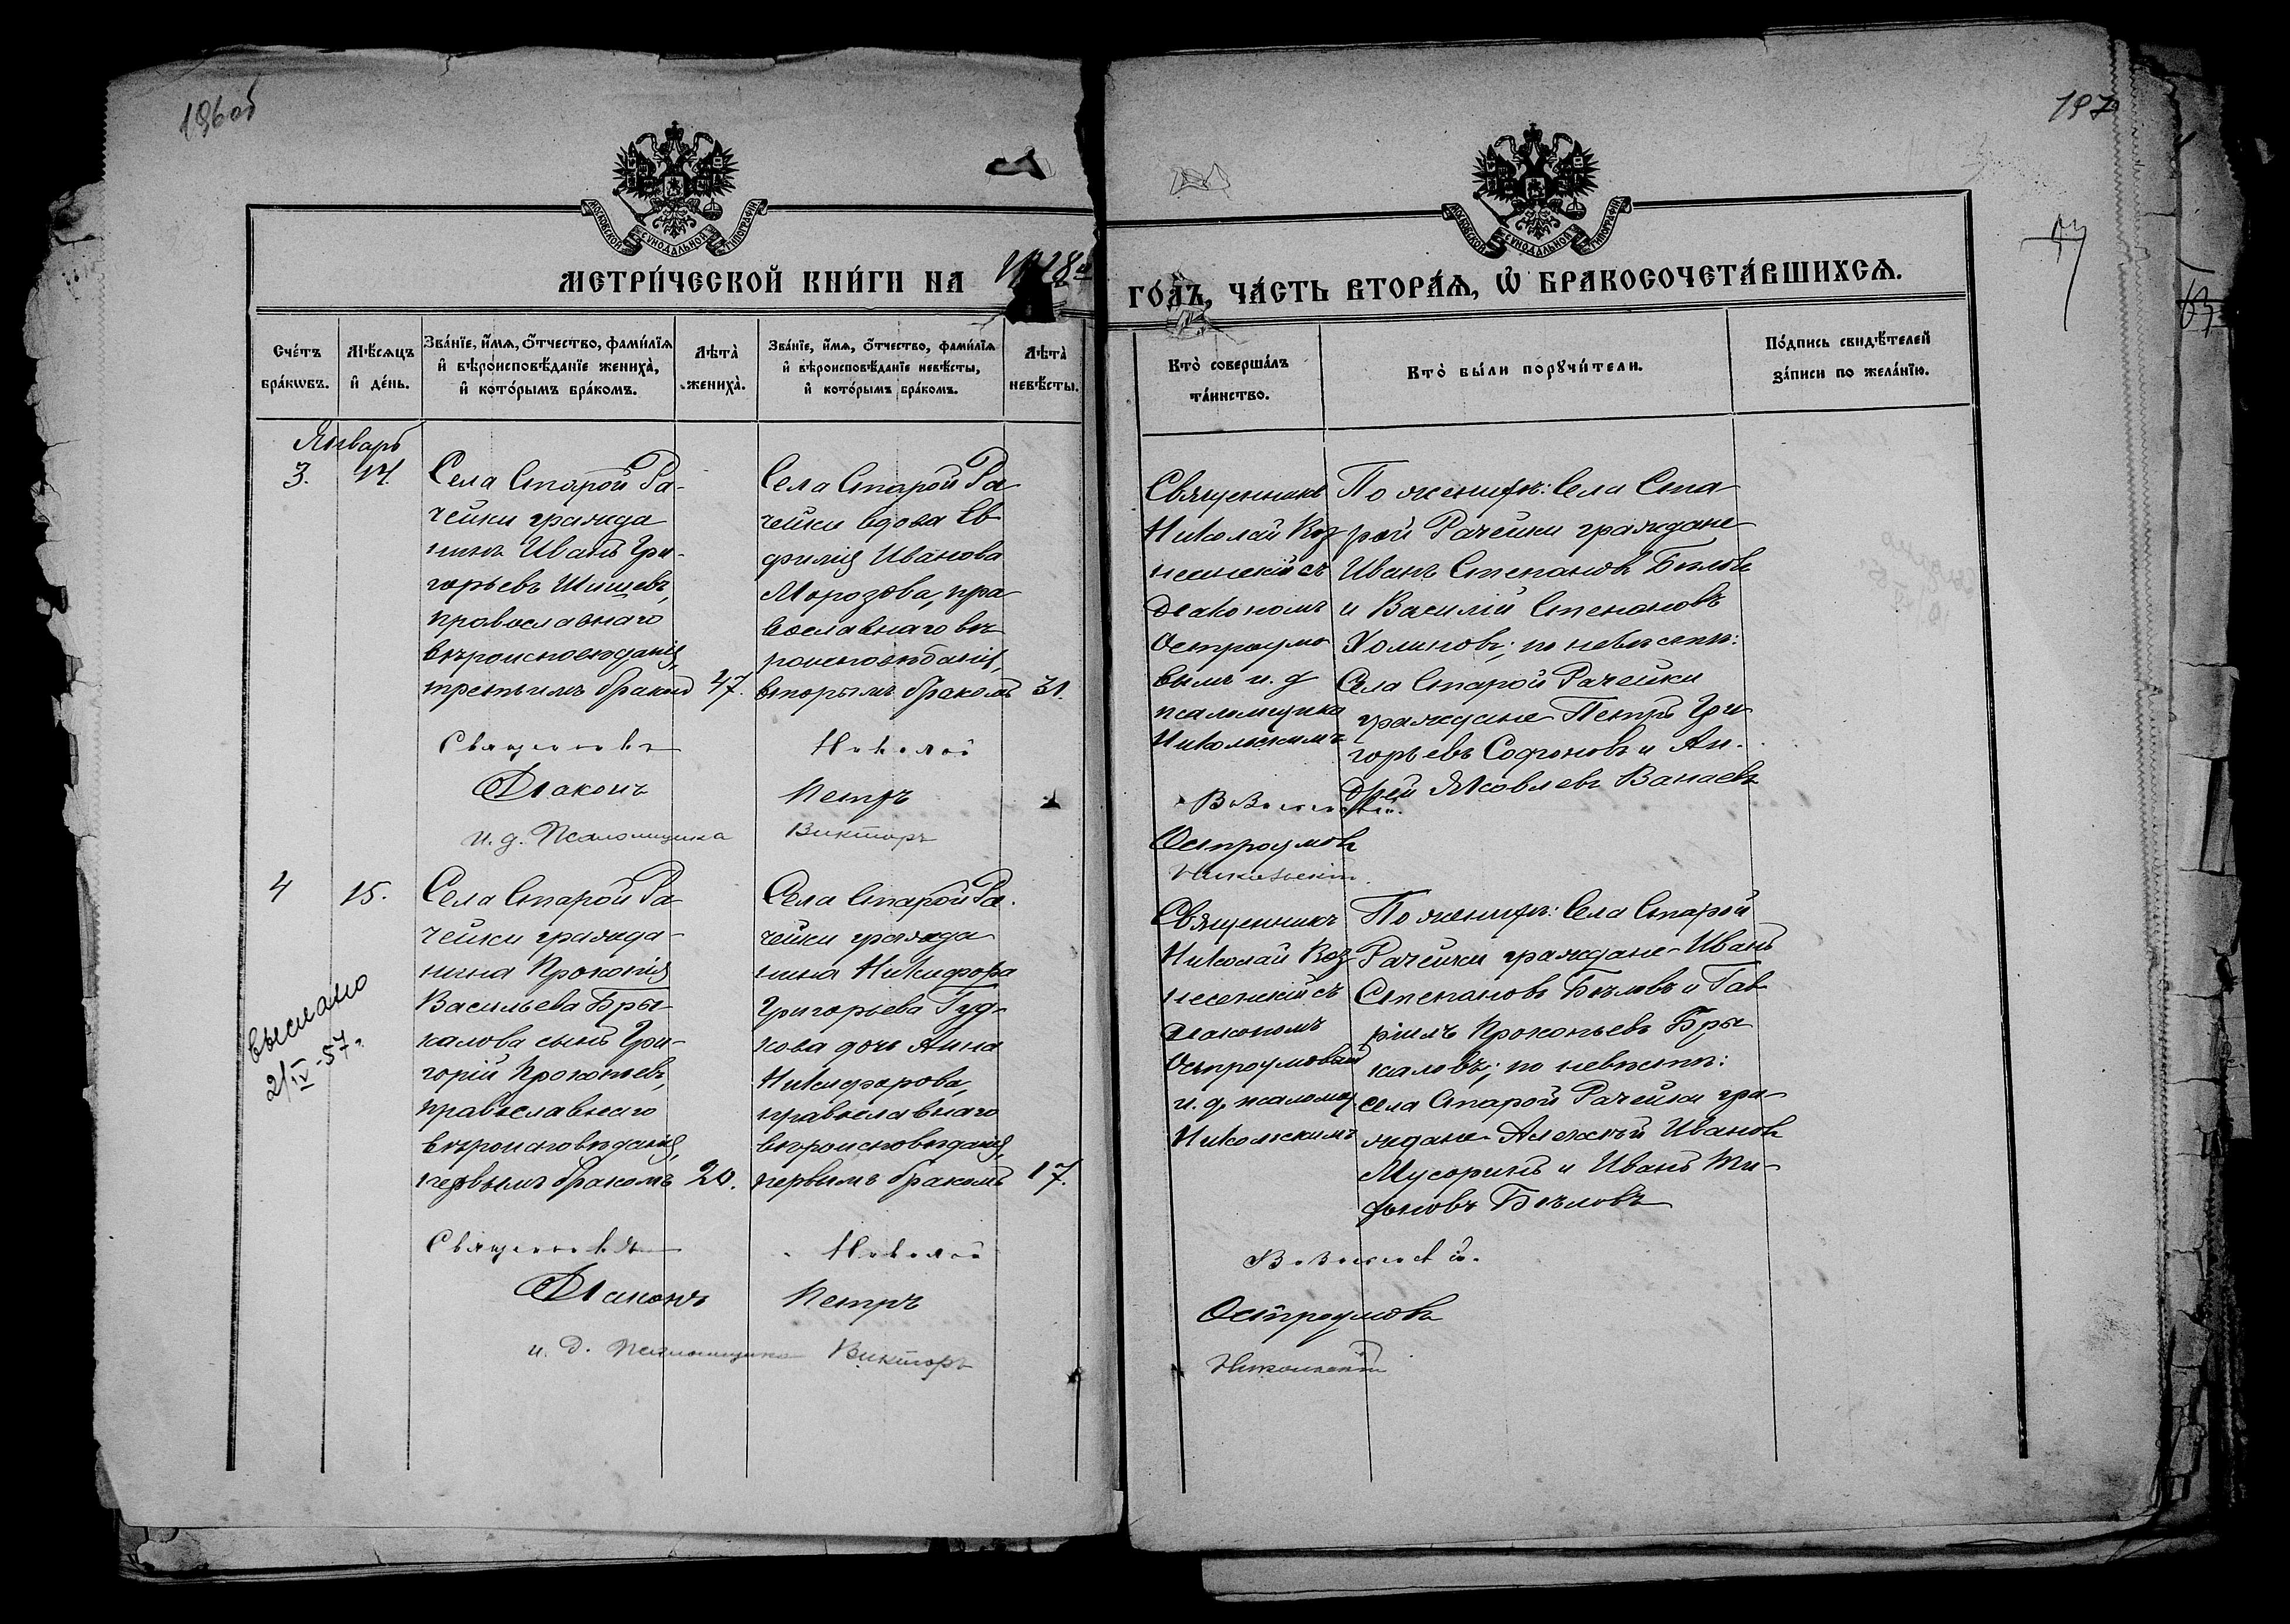 196об
197
МОСКОВСКОЙ СѴНОДАЛЬНОЙ ТИПОГРАФІИ
МОСКОВСКОЙ СѴНОДАЛЬНОЙ ТИПОГРАФІИ
МЕТРИ́ЧЕСКОЙ КНИ́ГИ НА
ГО́ДЪ, ЧА́СТЬ ВТОРА́Ѧ, Ѽ БРАКОСОЧЕТА́ВШИХСѦ.
Сче́тъ бра́кѡвъ.
Мѣ́сѧцъ и҆ де́нь.
Зва́нїе, и҆́мѧ, ѻ҆́тчество, фами́лїѧ и҆ вѣроисповѣ́данїе жениха̀, и҆ кото́рымъ бра́комъ.
Лѣта̀ жениха̀.
Зва́нїе, и҆́мѧ, ѻ҆́тчество, фами́лїѧ и҆ вѣроисповѣ́данїе невѣ́сты, и҆ кото́рымъ бра́комъ.
Лѣта̀ невѣ́сты.
Кто̀ соверша́лъ та́инство.
Кто̀ бы́ли порꙋчи́тели.
По́дпись свидѣ́телей за́писи по жела́нїю.
Январь
3.
14.
Села Старой Ра-
чейки гражда
нинъ Иванъ Гри-
горьевъ Шишевъ,
православнаго
вѣроисповѣданія,
третьимъ бракомъ
47.
Села Старой Ра
чейки вдова Ев
фимія Иванова
Морозова, пра
вославнаго вѣ
роисповѣданія,
вторымъ бракомъ
31.
Священникъ
Николай Воз
несенскій съ
діакономъ
Остроумо
вымъ и. д
псаломщика
Никольскимъ
По женихѣ: Села Ста
рой Рачейки граждане
Иванъ Степановъ Бѣловъ
и Василій Степановъ
Холиновъ; по невѣстѣ:
Села Старой Рачейки
граждане Петръ Гри
горьевъ Софоновъ и Ан-
дрей Яковлевъ Ванаевъ
Священникъ Николай Вознесенскій.
Діаконъ Петръ Остроумовъ
и. д. Псаломщика Викторъ Никольскій.
4
15.
Села Старой Ра-
чейки гражда-
нина Прокопія
Васильева Бры-
калова сынъ Гри-
горій Прокопьевъ,
православнаго
вѣроисповѣданія,
первымъ бракомъ
20.
Села Старой Ра-
чейки гражда
нина Никифора
Григорьева Гуд-
кова дочь Анна
Никифорова,
православнаго
вѣроисповѣданія,
первымъ бракомъ
17.
Священникъ
Николай Воз
несенскій съ
діакономъ
Остроумовым
и. д. псаломщ
Никольскимъ
По женихѣ: Села Старой
Рачейки граждане Иванъ
Степановъ Бѣловъ и Гав
ріилъ Прокопьевъ Бры
каловъ; по невѣстѣ:
села Старой Рачейки гра-
ждане Алексѣй Ивановъ
Мусоринъ и Иванъ Ти-
фоновъ Бѣловъ
выслано
2/IV-57г.
Священникъ Николай Вознесенскій.
Діаконъ Петръ Остроумовъ
и. д. Псаломщика Викторъ Никольскій